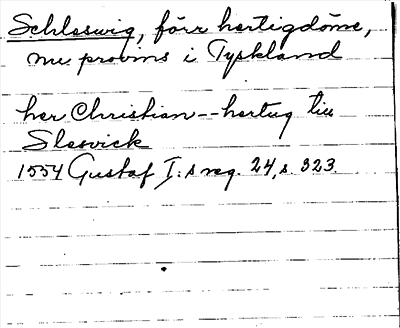 Schleswig, förr hertigdöme,
nu provins i Tyskland
her Christian--hertug till
Slesvick
1554 Gustaf I:s reg. 24, s. 323.